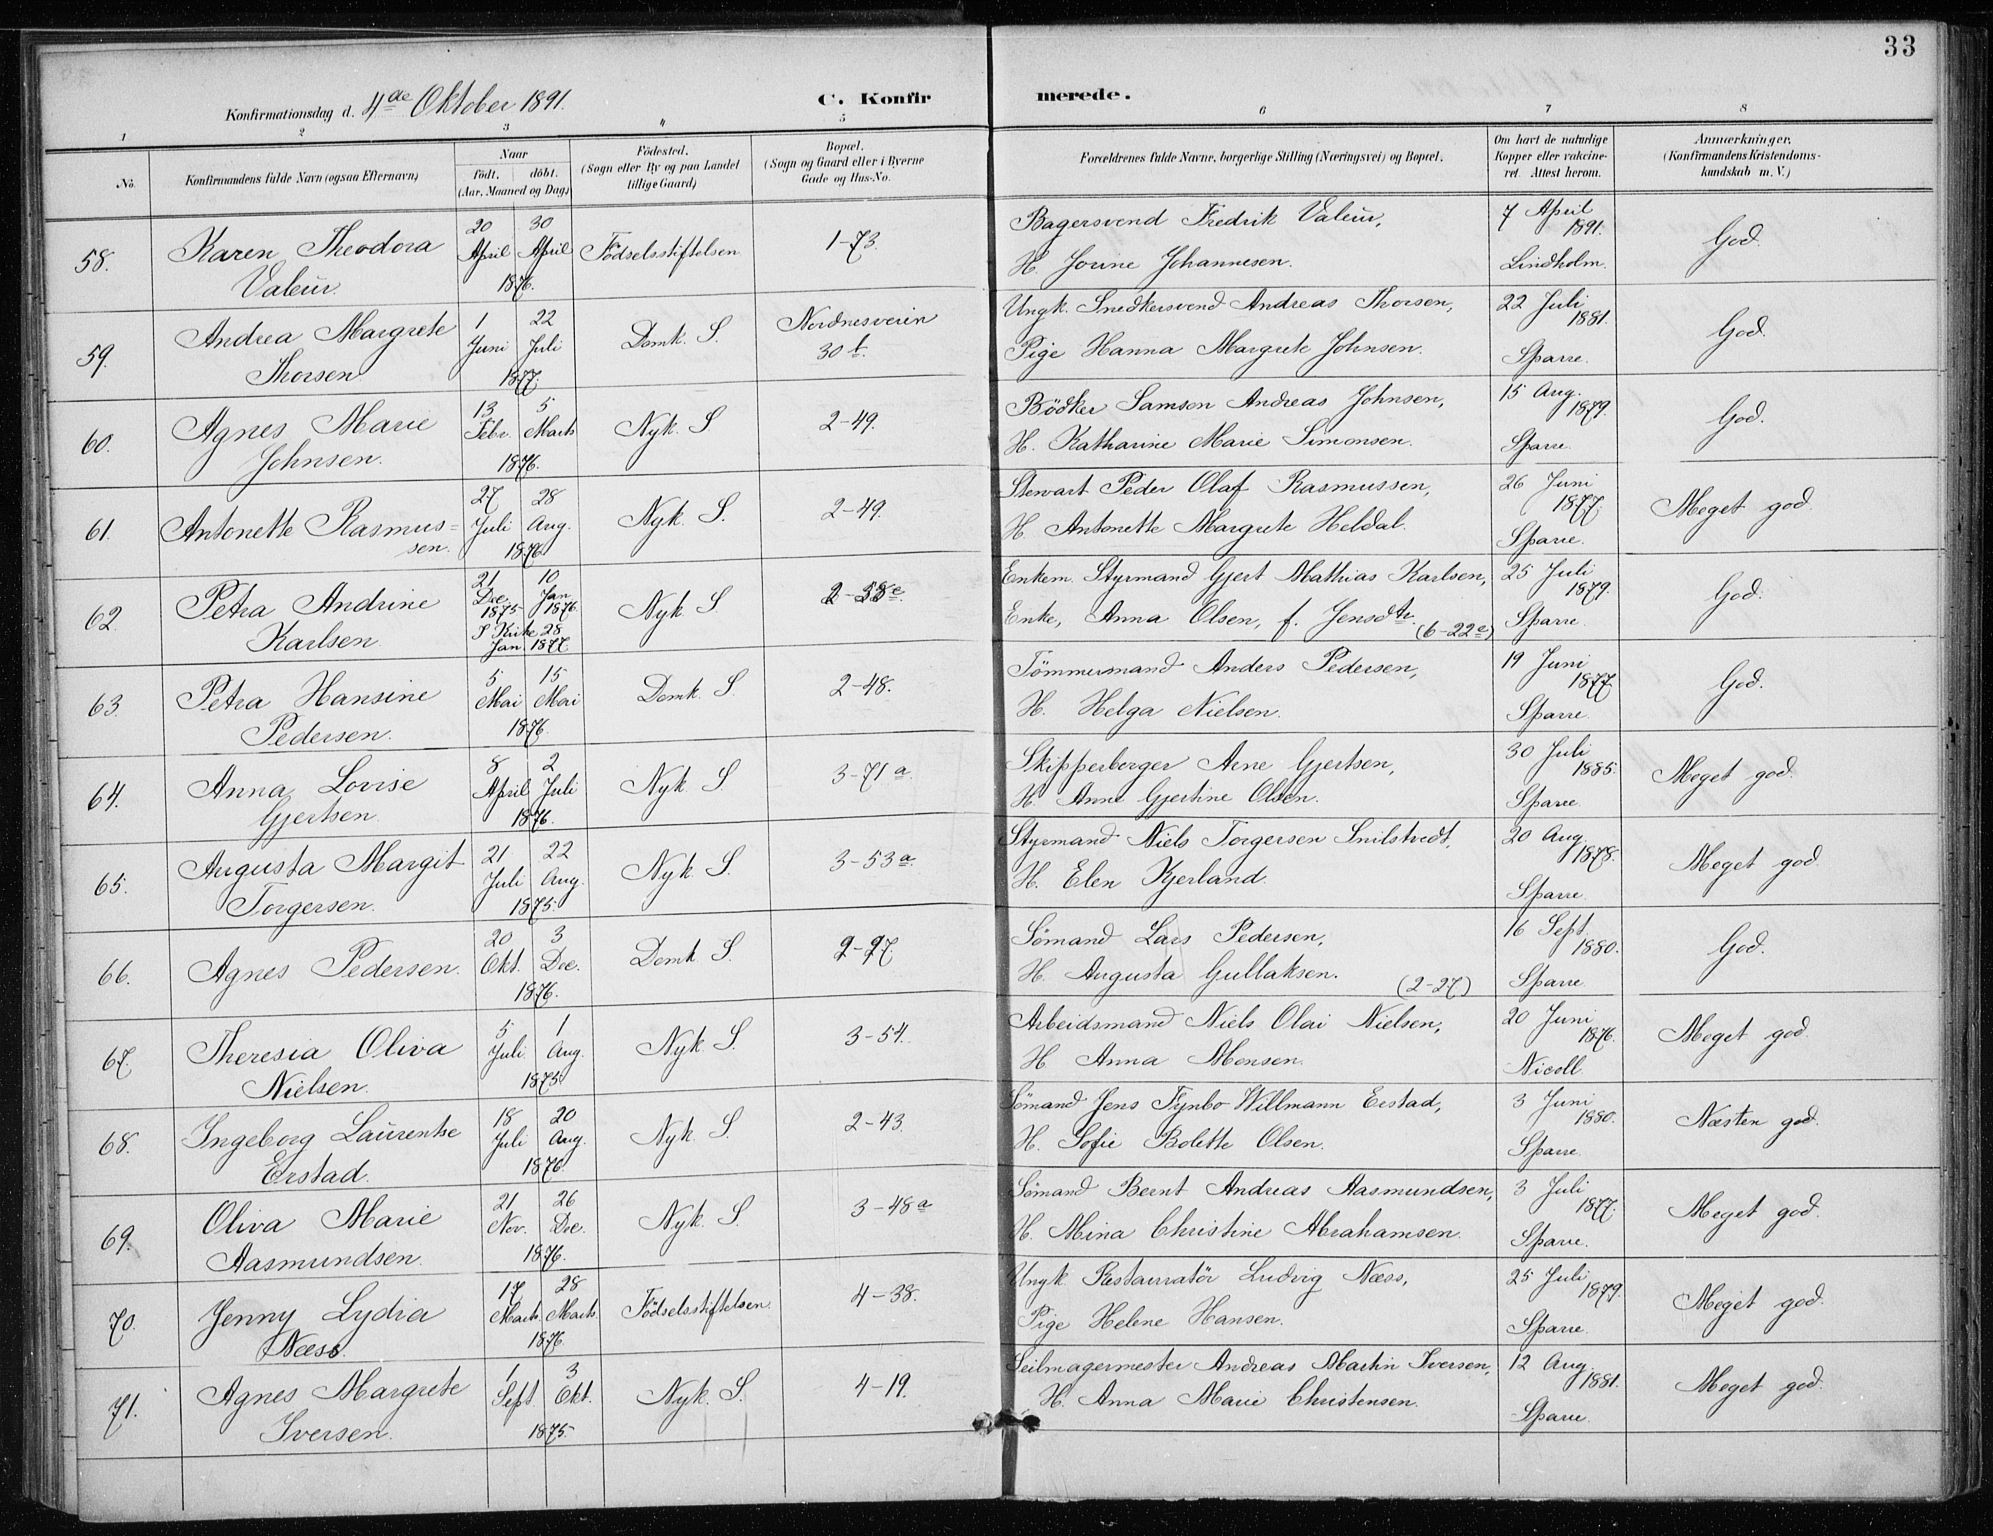 33
Konfirmationsdag d. 4de Oktober 1891.
C. Konfirmerede.
1 2 3 4 5 6 7 8
No.
Konfirmandens fulde Navn (ogsaa Efternavn)
Naar
födt. döbt.
(Aar, Maaned og Dag)
Födested.
(Sogn eller By og paa Landet
tillige Gaard)
Bopæl.
(Sogn og Gaard eller i Byerne
Gade og Hus-No.
Forældrenes fulde Navne, borgerlige Stilling (Næringsvei) og Bopæl.
Om havt de naturlige
Kopper eller vakcine-
ret. Attest herom.
Anmærkninger.
(Konfirmandens Kristendoms-
kundskab m. V.)
58. Karen Theodora
Valeur.
20 April 30 April
1876.
Födselsstiftelsen
1-73.
Bagersvend Fredrik Valeur,
H. Jorine Johannesen.
7 April
1891.
Lindholm.
God.
59. Andrea Margrete
Thorsen
1 Juni 22 Juli
1877.
Domk. S.
Nordnesveien
30 b.
Ungk. Snedkersvend Andreas Thorsen,
Pige Hanna Margrete Johnsen.
22 Juli
1881.
Sparre.
God.
60. Agnes Marie
Johnsen.
13 Febr. 5 Marts
1876.
Nyk. S
2-49.
Bödker Samson Andreas Johnsen,
H. Katharine Marie Simonsen.
15 Aug.
1879.
Sparre.
God.
61. Antonette Rasmus=
sen.
27 Juli 28 Aug.
1876.
Nyk. S.
2-49.
Stewart Peder Olaf Rasmussen,
H. Antonette Margrete Heldal.
26 Juni
1877.
Sparre.
Meget god.
62. Petra Andrine
Karlsen
21 Dec. 1875 10 Jan 1876.
S Kirke 28
Jan. 1877
Nyk. S
Enkem. Styrmand Gjert Mathias Karlsen,
Enke, Anna Olsen, f. Jensdtr.
(6-22e)
25 Juli
1879.
Sparre.
God.
63. Petra Hansine
Pedersen.
5 Mai 15 Mai
1876.
Domk. S.
2-48.
Tömmermand Anders Pedersen,
H. Helga Nielsen.
19 Juni
1877
Sparre.
God.
64. Anna Lovise
Gjertsen.
8 April 2 Juli
1876.
Nyk. S
3-71a.
Skipperborger Arne Gjertsen,
H. Anne Gjertine Olsen.
30 Juli
1885.
Sparre.
Meget god.
65. Augusta Margit
Torgersen.
21 Juli 22 Aug.
1875.
Nyk. S.
3-53a.
Styrmand Niels Torgersen Snilstvedt,
H. Elen Kjerland.
20 Aug
1878.
Sparre.
Meget god.
66. Agnes Pedersen.
20 Okt. 3 Dec.
1876.
Domk S.
2-27
Sömand Lars Pedersen,
H. Augusta Gullaksen.
(2-27)
16 Sept.
1880.
Sparre.
God.
67. Theresia Oliva
Nielsen.
5 Juli 1 Aug.
1875
Nyk. S.
3-54.
Arbeidsmand Niels Olai Nielsen,
H. Anna Monsen.
20 Juni
1876.
Nicoll.
Meget god.
68. Ingeborg Laurentse
Erstad.
18 Juli 20 Aug.
1876
Nyk. S.
2-43.
Sömand Jens Fynbo Willmann Erstad,
H. Sofie Bolette Olsen.
3 Juni
1880.
Sparre.
Næsten god.
69. Oliva Marie
Aasmundsen.
21 Nov. 26 Dec.
1876.
Nyk. S.
3-48a
Sömand Bernt Andreas Aasmundsen,
H. Mina Christine Abrahamsen.
3 Juli
1877.
Sparre.
Meget god.
70. Jenny Lydia
Næss.
17 Marts. 28 Marts.
1876.
Födselsstiftelsen.
4-38.
Ungk. Restauratör Ludvig Næss,
Pige Helene Hansen.
25 Juli
1879.
Sparre.
Meget god.
71. Agnes Margrete
Iversen.
1 Sept. 3 Okt.
1875.
Nyk. S.
4-19.
Seilmagermester Andreas Martin Iversen,
H. Anna Marie Christensen.
12 Aug.
1881.
Sparre.
Meget god.